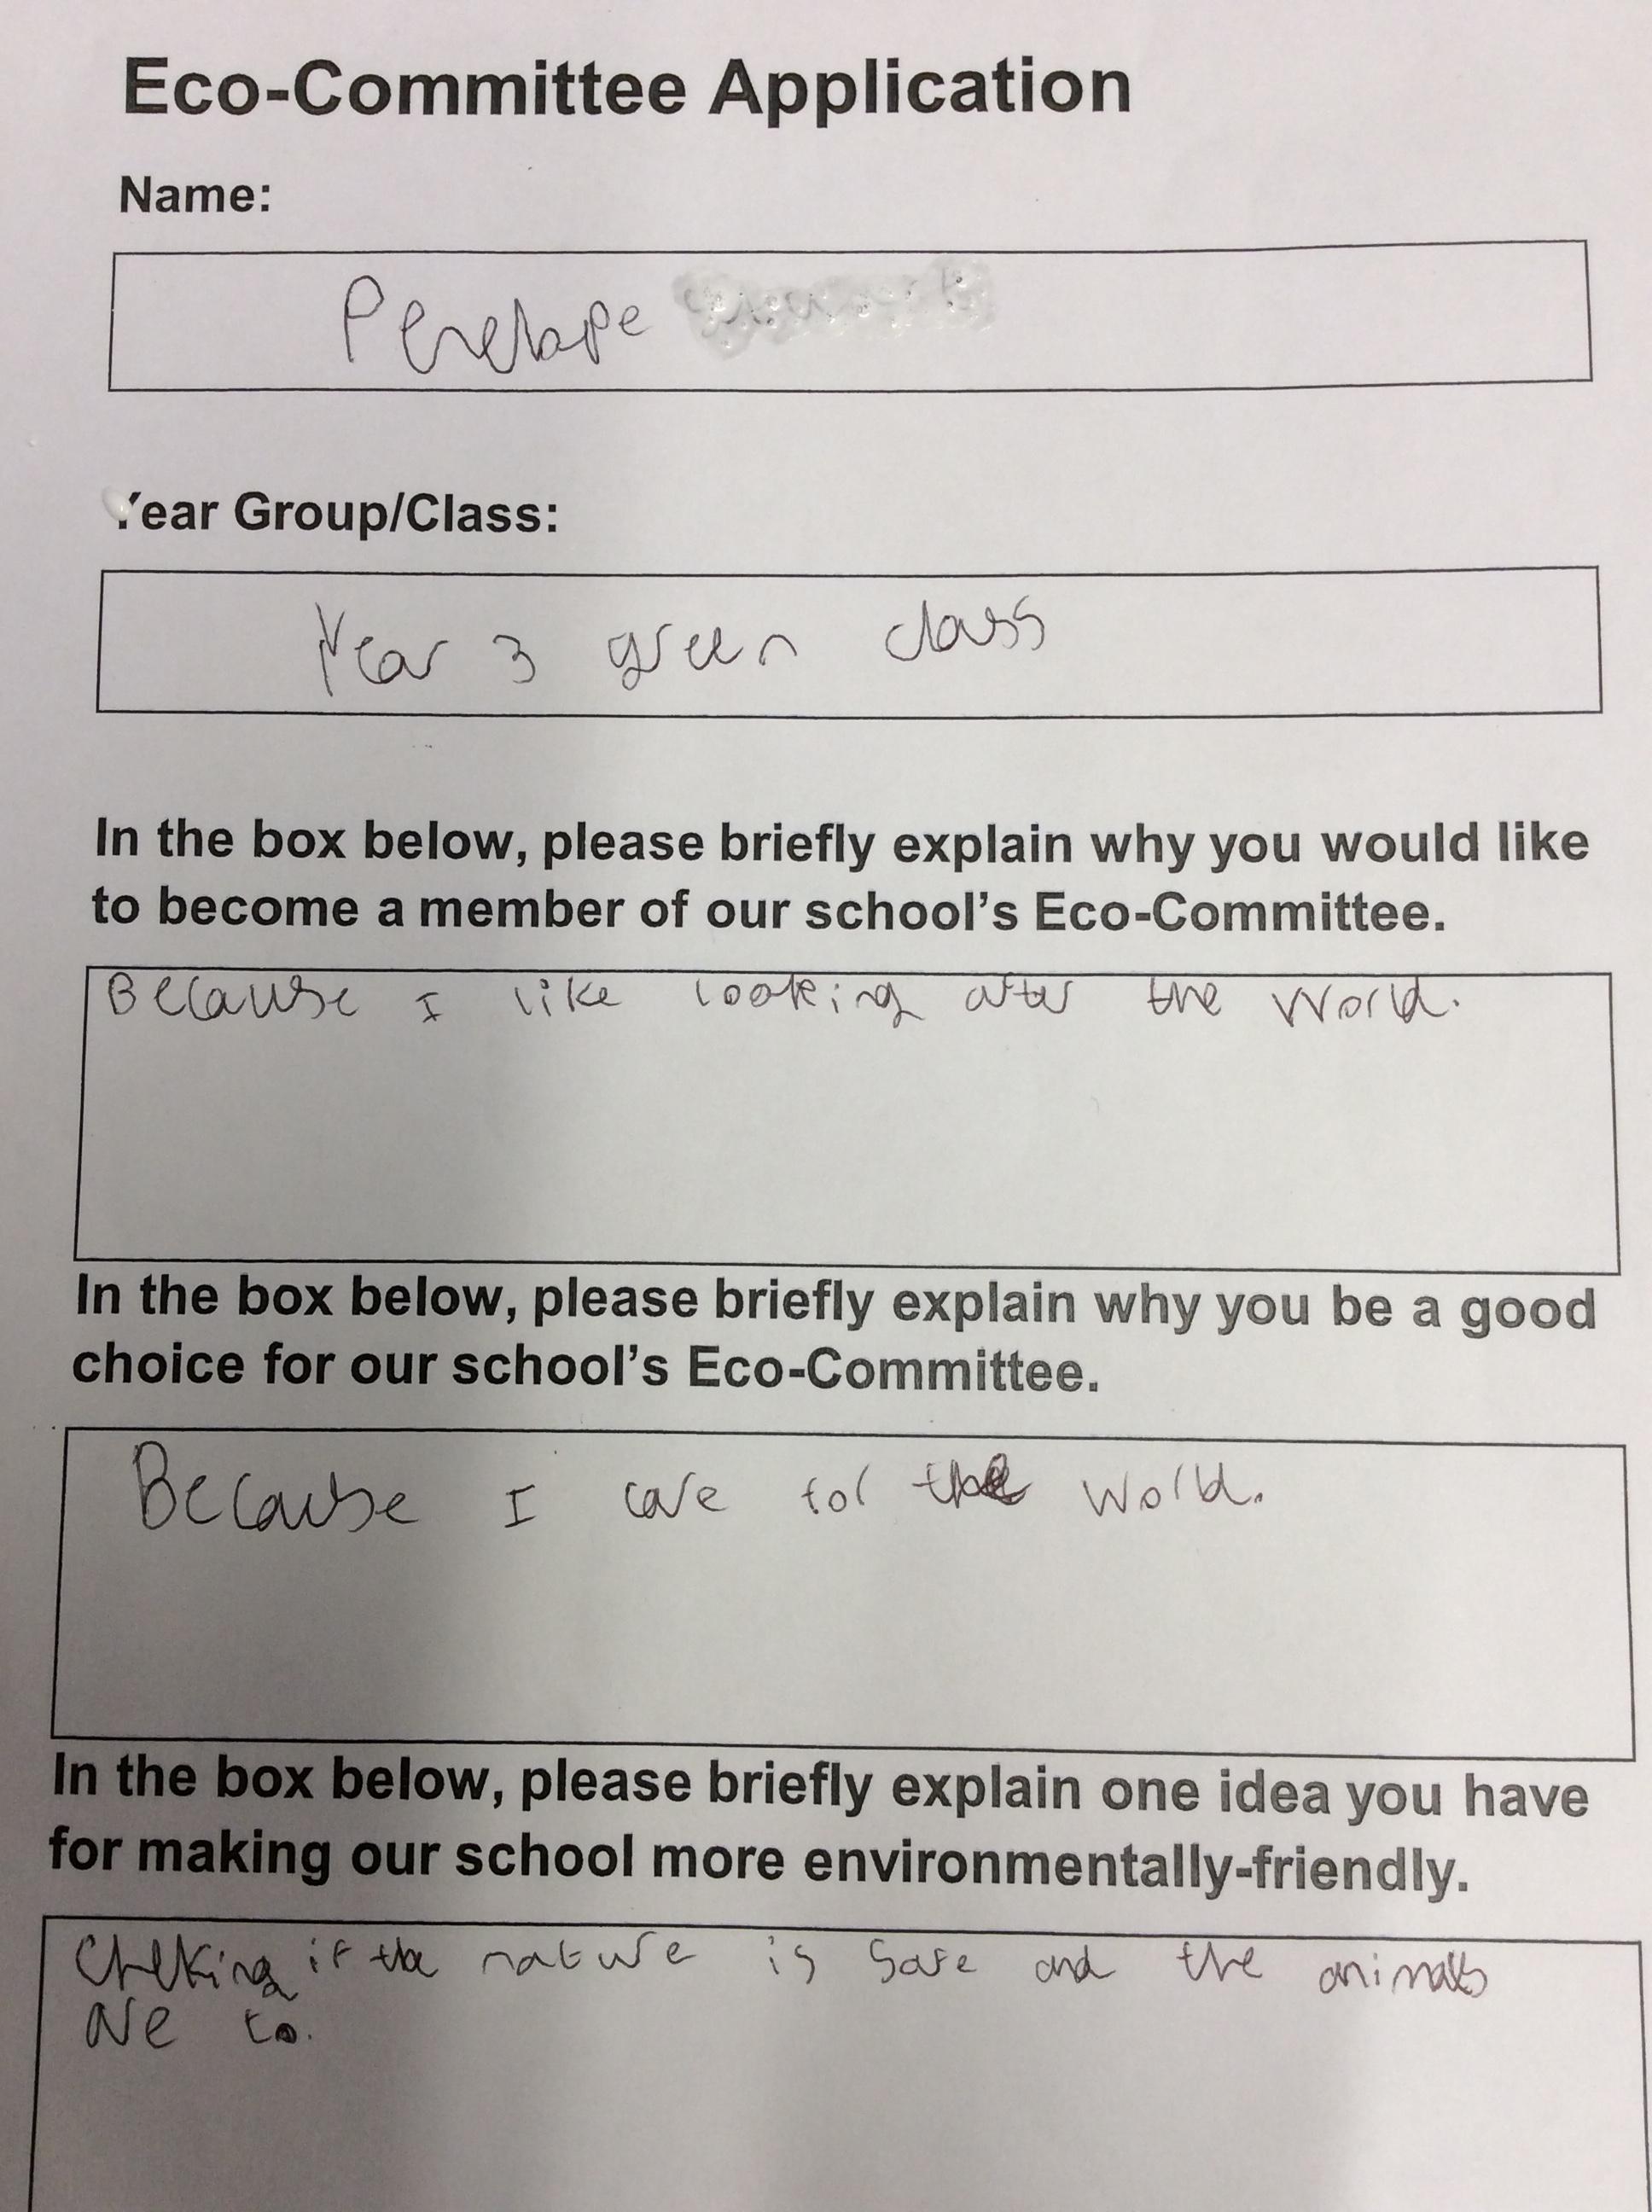 Eco-Committee Application
Name:
Penelope
Year Group/Class:
Year 3 green class
In the box below, please briefly explain why you would like
to become a member of our school's Eco-Committee.
Because I like looking after the world.
In the box below, please briefly explain why you be a good
choice for our school's Eco-Committee.
Because I care for the world.
In the box below, please briefly explain one idea you have
for making our school more environmentally-friendly.
Cheking if the nature is safe and the animals
are to.